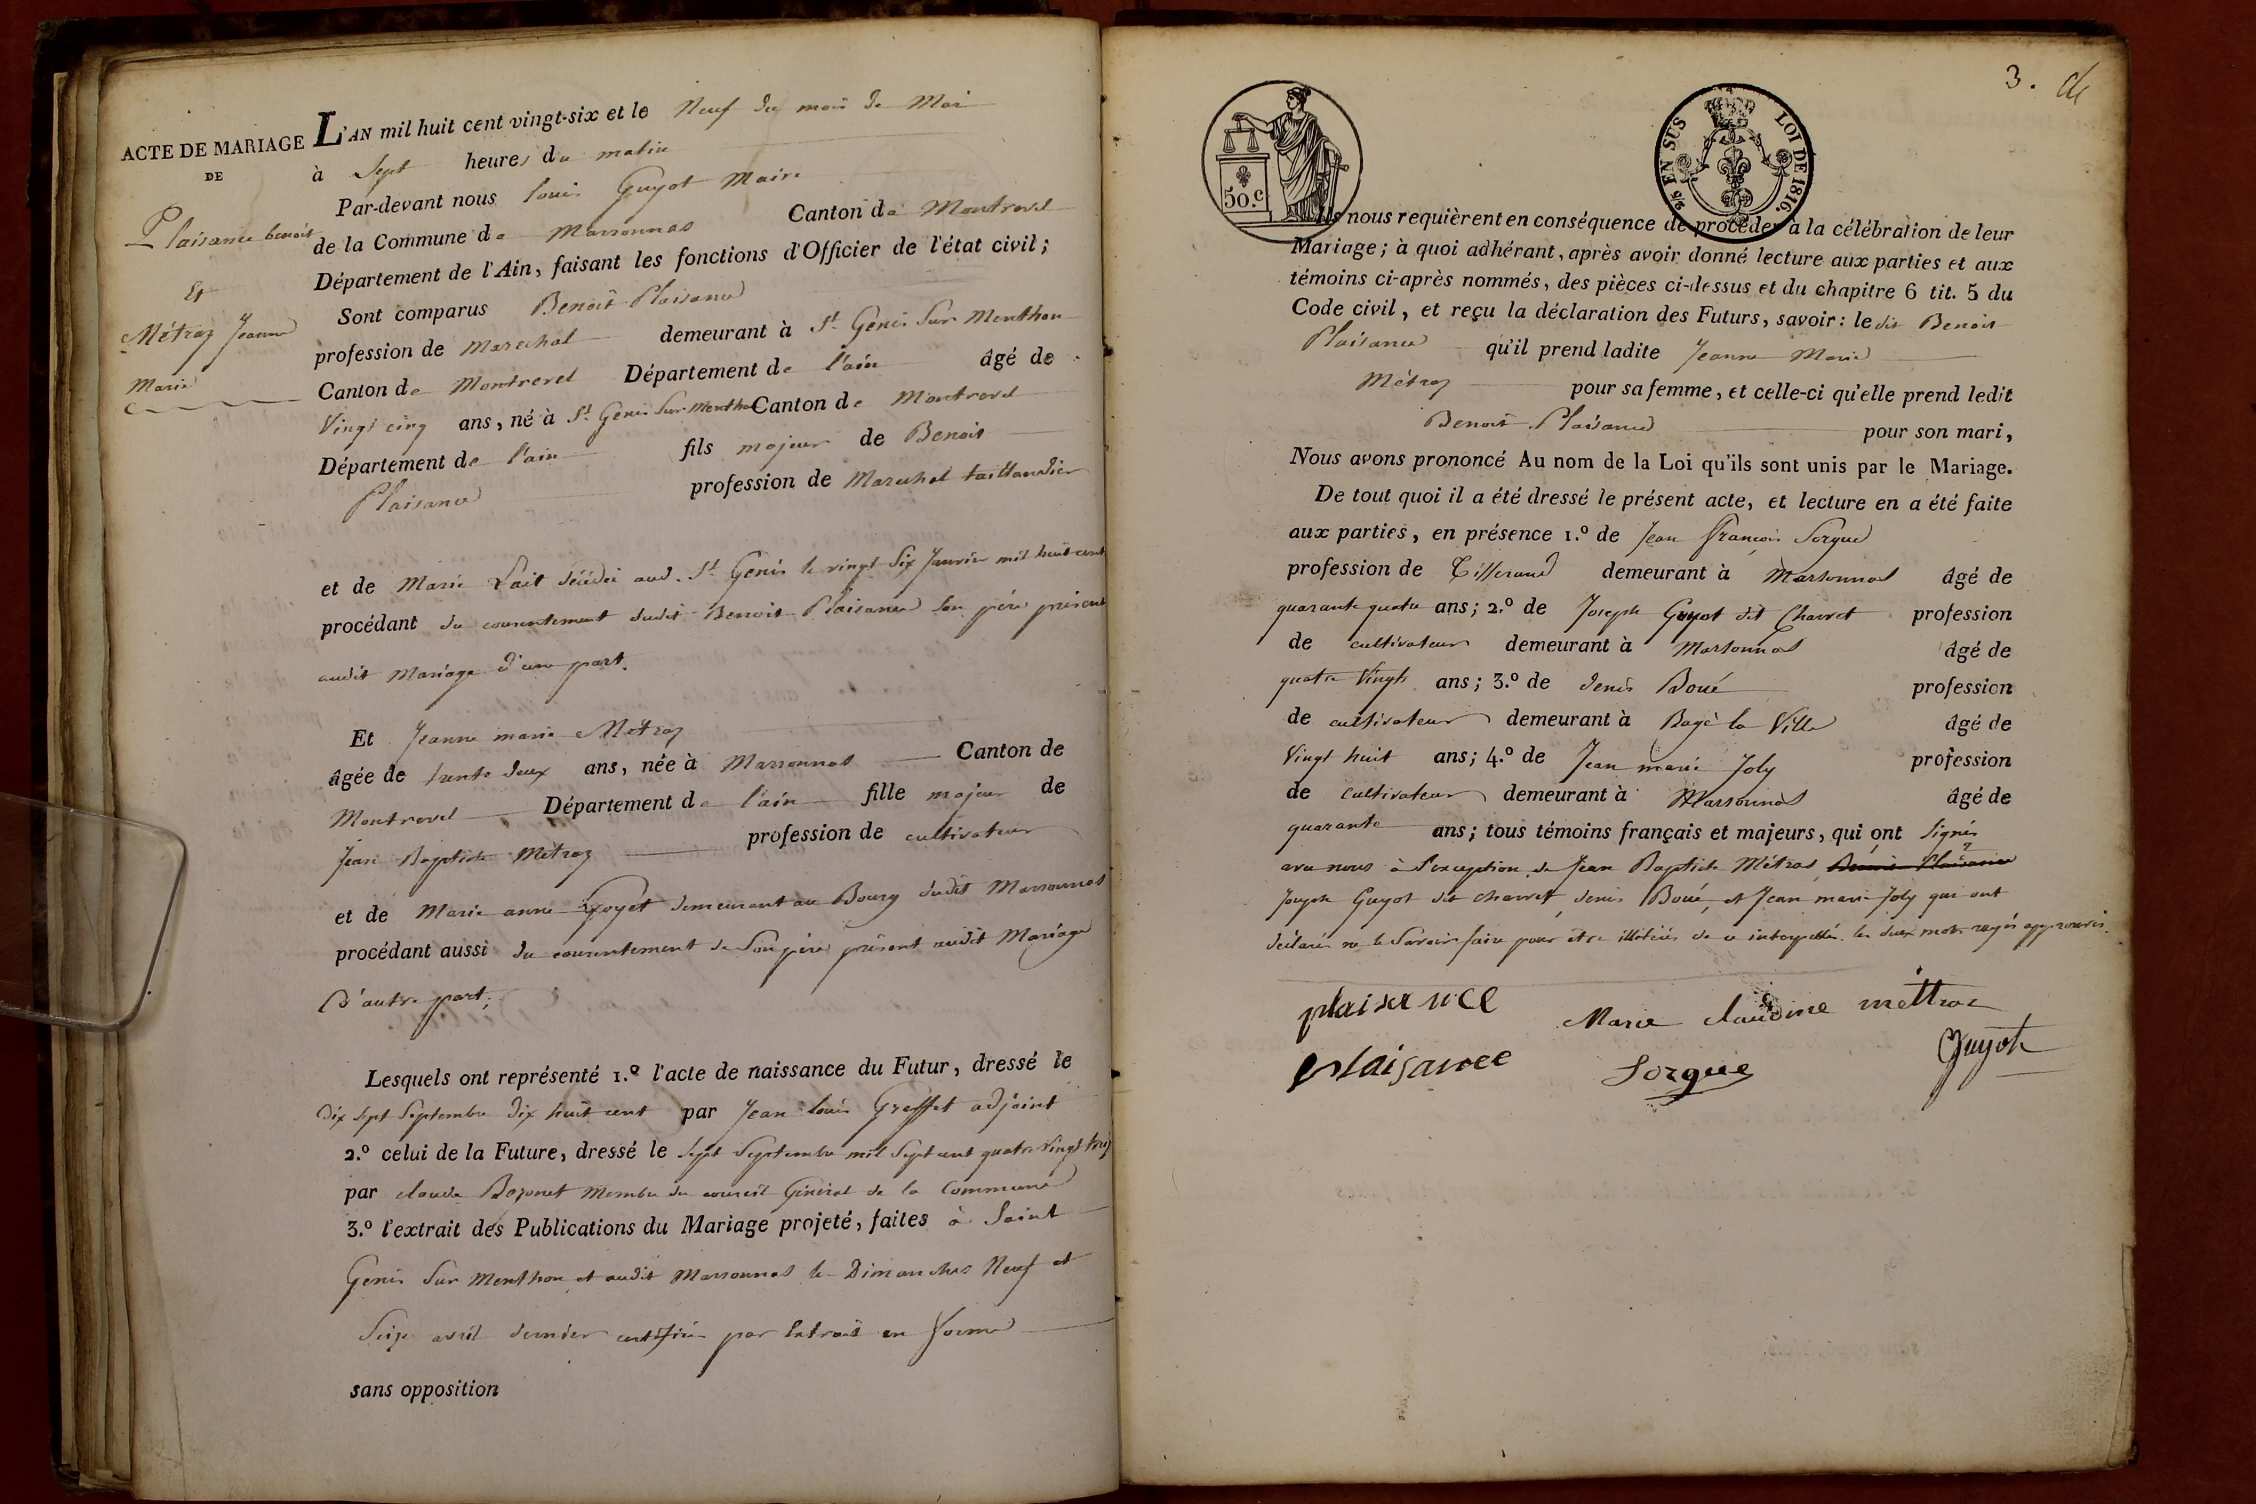 ACTE DE MARIAGE
DE
Plaisance benoit
Et
Métraz Jeanne
Marie
L'AN mil huit cent vingt-six et le Neuf du mois de Mai
à Sept heures du matin
Par-devant nous Louis Guyot Maire
de la Commune de Marsonnas Canton de Montrevel
Département de l'Ain, faisant les fonctions d'Officier de l'état civil;
Sont comparus Benoit Plaisance
profession de Marechal demeurant à St Genis Sur Menthon
Canton de Montrevel Département de l'ain âgé de
Vingt cinq ans, né à St Genis Sur Menthon Canton de Montrevel
Département de l'ain fils majeur de Benoit
Plaisance profession de Marechal taillandier
et de Marie Lait décédée aud. St Genis le vingt Six Janvier mil huit cent
procédant du consentement dudit Benoit Plaisance Son père présent
audit Mariage d'une part.
Et Jeanne marie Métraz
âgée de trente deux ans, née à Marsonnas Canton de
Montrevel Département de l'ain fille majeur de
Jean Baptiste Métraz profession de cultivateur
et de Marie anne Goyet demeurant au Bourg dudit Marsonnas
procédant aussi du consentement de Son père présent audit Mariage
d'autre part;
Lesquels ont représenté 1.º l'acte de naissance du Futur, dressé le
Dix Sept Septembre Dix huit cent par Jean Louis Greffet adjoint
2.º celui de la Future, dressé le Sept Septembre mil Sept cent quatre Vingt treize
par claude Bozonet Membre du conseil Général de la Commune
3.º l'extrait des Publications du Mariage projeté, faites à Saint
Genis Sur Menthon et audit Marsonnas les Dimanches Neuf et
Seize avril dernier certifiée par Extrait en forme
sans opposition
3. de
50.c
2/5 EN SUS LOI DE 1816.
Ils nous requièrent en conséquence de procéder à la célébration de leur
Mariage; à quoi adhérant, après avoir donné lecture aux parties et aux
témoins ci-après nommés, des pièces ci-dessus et du chapitre 6 tit. 5 du
Code civil, et reçu la déclaration des Futurs, savoir: le dit Benoit
Plaisance qu'il prend ladite Jeanne Marie
Métraz pour sa femme, et celle-ci qu'elle prend ledit
Benoit Plaisance pour son mari,
Nous avons prononcé Au nom de la Loi qu'ils sont unis par le Mariage.
De tout quoi il a été dressé le présent acte, et lecture en a été faite
aux parties, en présence 1.º de Jean François Sorgue
profession de Tisserand demeurant à Marsonnas âgé de
quarante quatre ans; 2.º de Joseph Guyot dit Charret profession
de cultivateur demeurant à Marsonnas âgé de
quatre Vingts ans; 3.º de denis Boué profession
de cultivateur demeurant à Bagé la Ville âgé de
Vingt huit ans; 4.º de Jean marie Joly profession
de Cultivateur demeurant à Marsonnas âgé de
quarante ans; tous témoins français et majeurs, qui ont Signés
avec nous à l'exception de Jean Baptiste Métraz Benoit Plaisance
Joseph Guyot dit charret, denis Boué, et Jean marie Joly qui ont
déclarés ne le Savoir faire pour être illétérés de ce interpellés. les deux mots rayés approuvés.
plaisance
Marie claudine mettraz
Guyot
plaisance
Sorgue